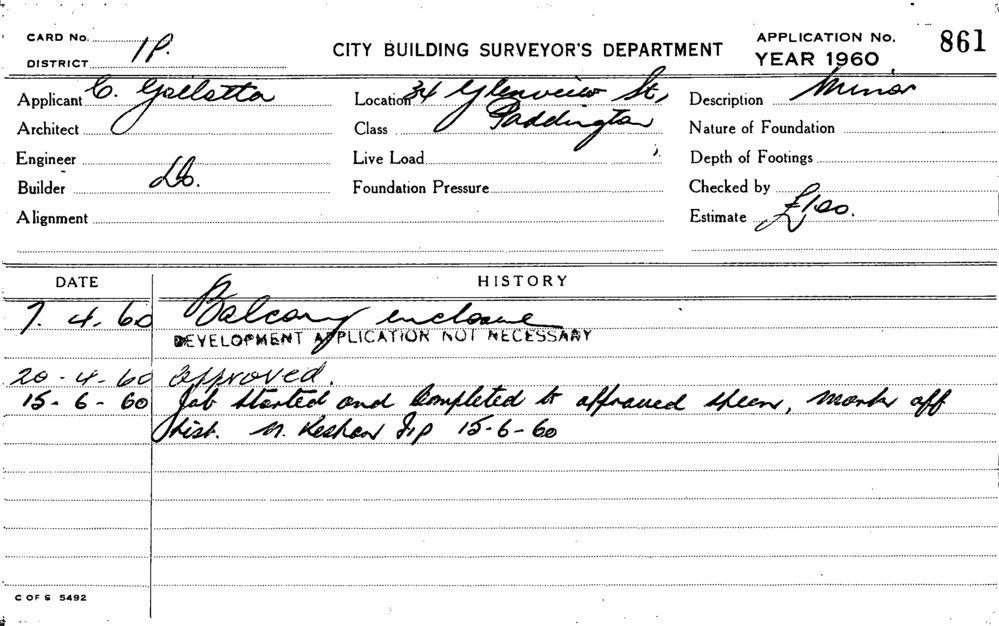 CARD No.
DISTRICT 1P.
CITY BUILDING SURVEYOR'S DEPARTMENT
APPLICATION No. 861
YEAR 1960
Applicant C. Gallotta
Location 34 Glenview St,
Description Minor
Architect
Class Paddington
Nature of Foundation
Engineer
Live Load
Depth of Footings
Builder Do.
Foundation Pressure
Checked by
Alignment
Estimate £100.
DATE HISTORY
7. 4. 60 Balcony enclosure
DEVELOPMENT APPLICATION NOT NECESSARY
20-4-60 Approved.
15-6-60 Job Started and Completed to approved specn, mark off
List. M. 15-6-60
C OF S 5492